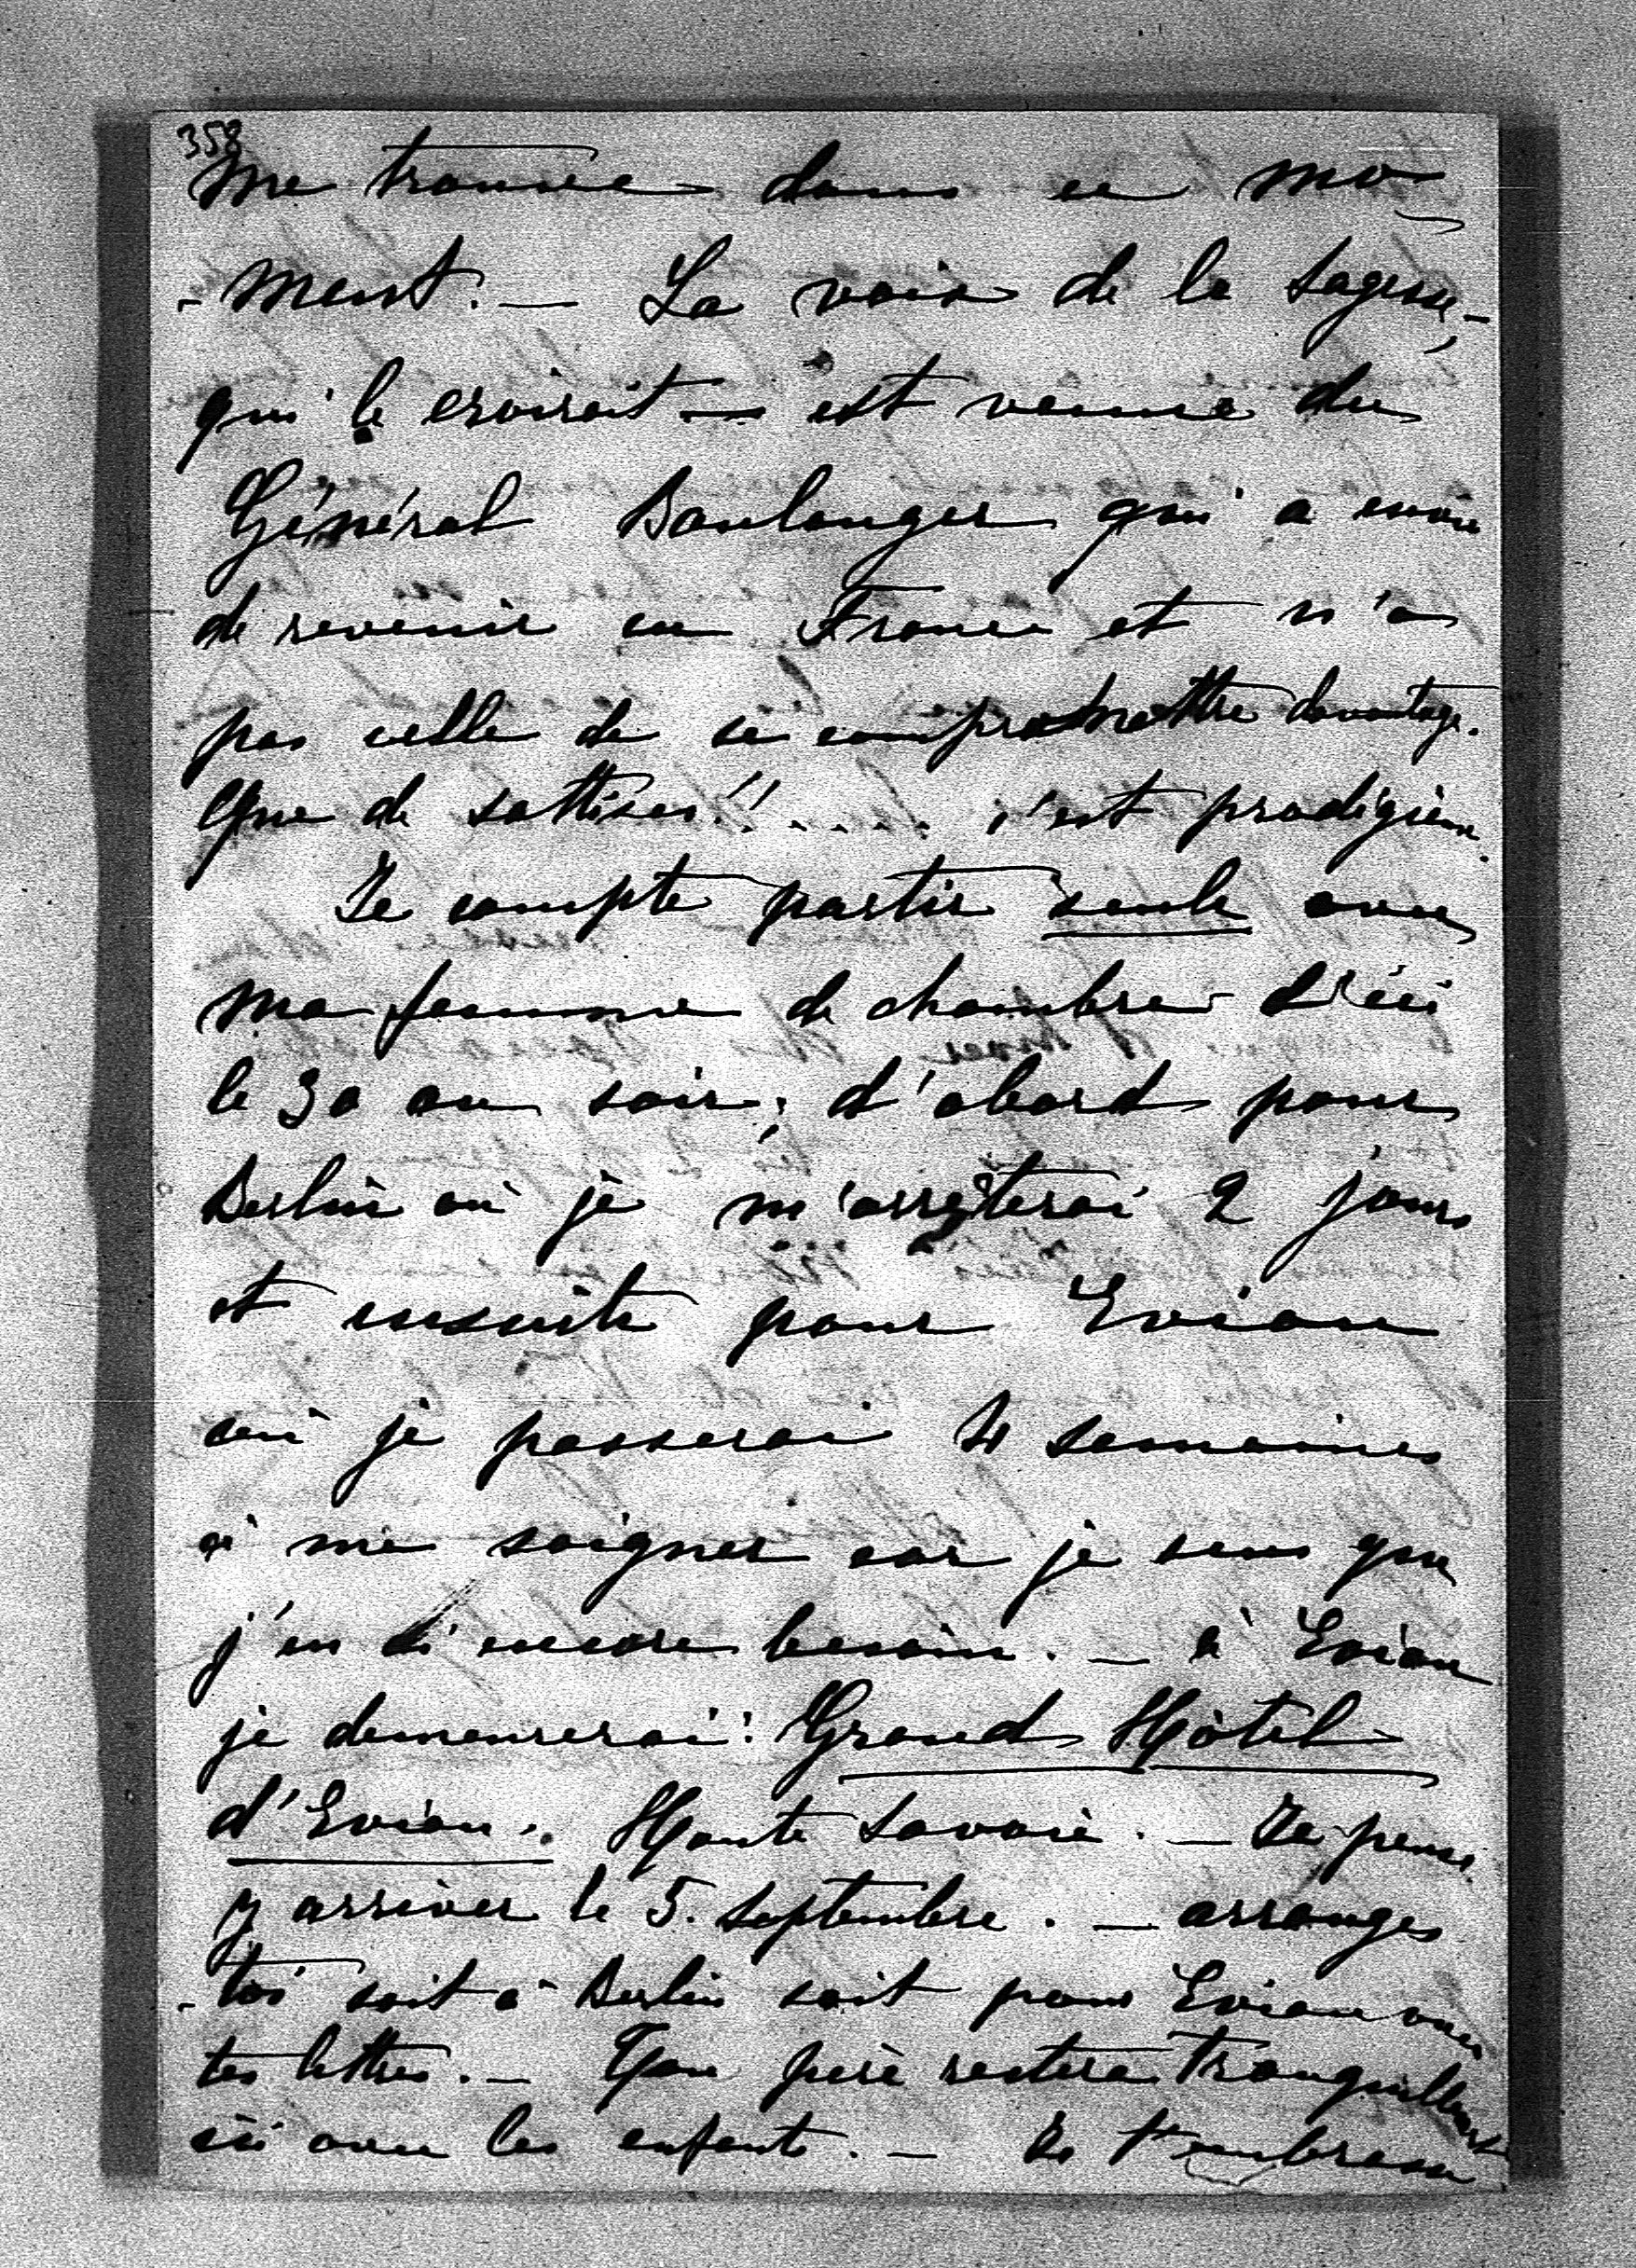 358
me trouve dans ce mo
-ment. — La voix de la sagesse, -
qui le croirait — est venue du
Général Boulanger qui a envie
de revenir en France et n'a
pas celle de se compromettre davantage.
Que de sottises!! .... c'est prodigieux.
Je compte partir seule avec
ma femme de chambre d'ici
le 30 au soir; d'abord pour
Berlin où je m'arrêterai 2 jours
et ensuite pour Evian
où je passerai 4 semaines
à me soigner car je sens que
j'en ai encore besoin. — à Evian
je demeurerai: Grand Hôtel
d'Evian. Haute Savoie. — Je pense
y arriver le 5. Septembre. — arranges
-toi soit à Berlin soit pour Evian avec
tes lettres. — Ton père restera tranquillement
ici avec les enfants. — Je t'embrasse